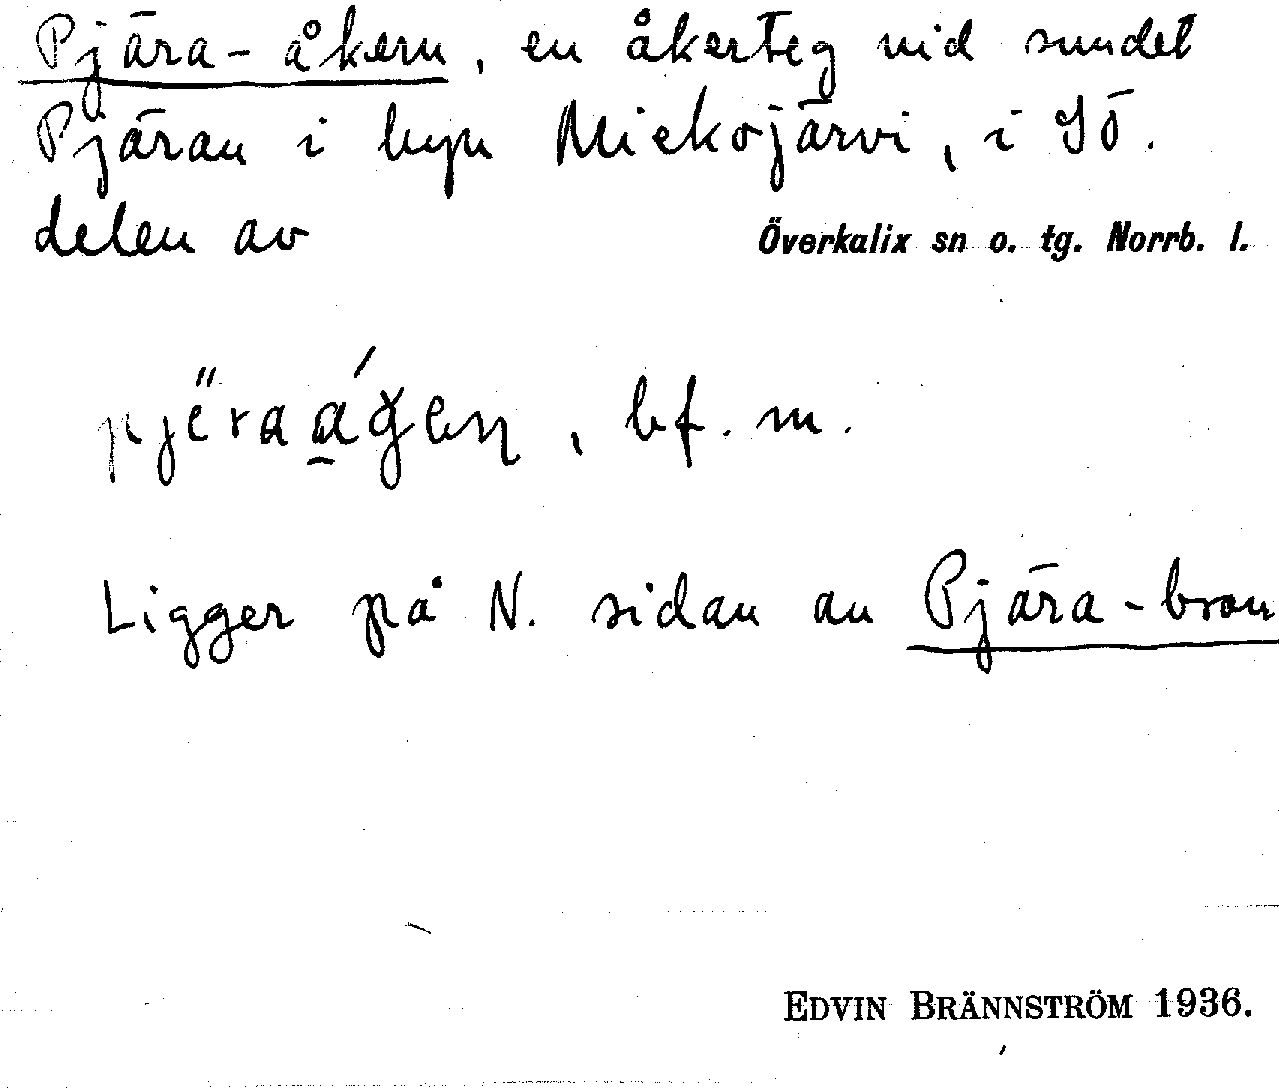 Pjära-åkern, en åkerteg vid sundet
Pjäran i byn Miekojärvi, i SÖ.
delen av Överkalix sn o. tg. Norrb. l.
bf. m.
Ligger på N. sidan av Pjära-bron
EDVIN BRÄNNSTRÖM 1936.